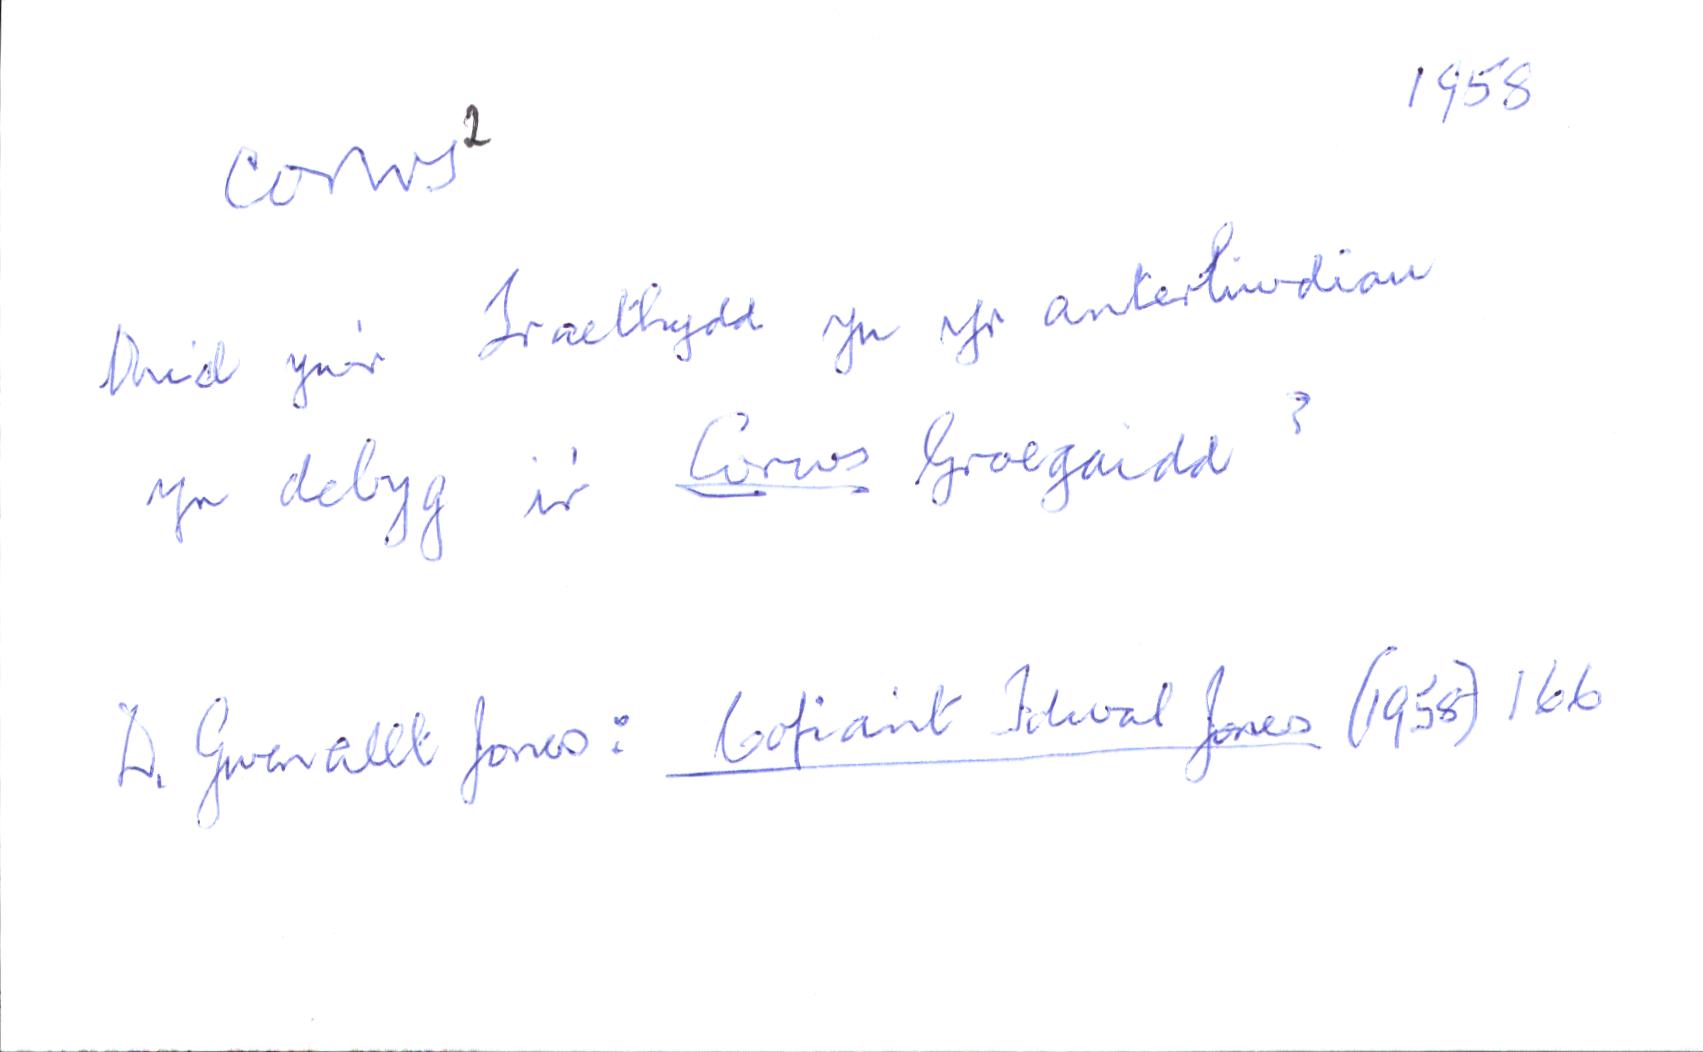 1958
corws²
Onid yw'r Traethydd yn yr anterliwdiau
yn debyg i'r Corws Groegaidd?
D. Gwenallt Jones: Cofiant Idwal Jones (1958) 166